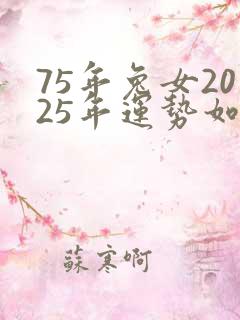 75年兔女20
25年運勢如
蘇寒啊